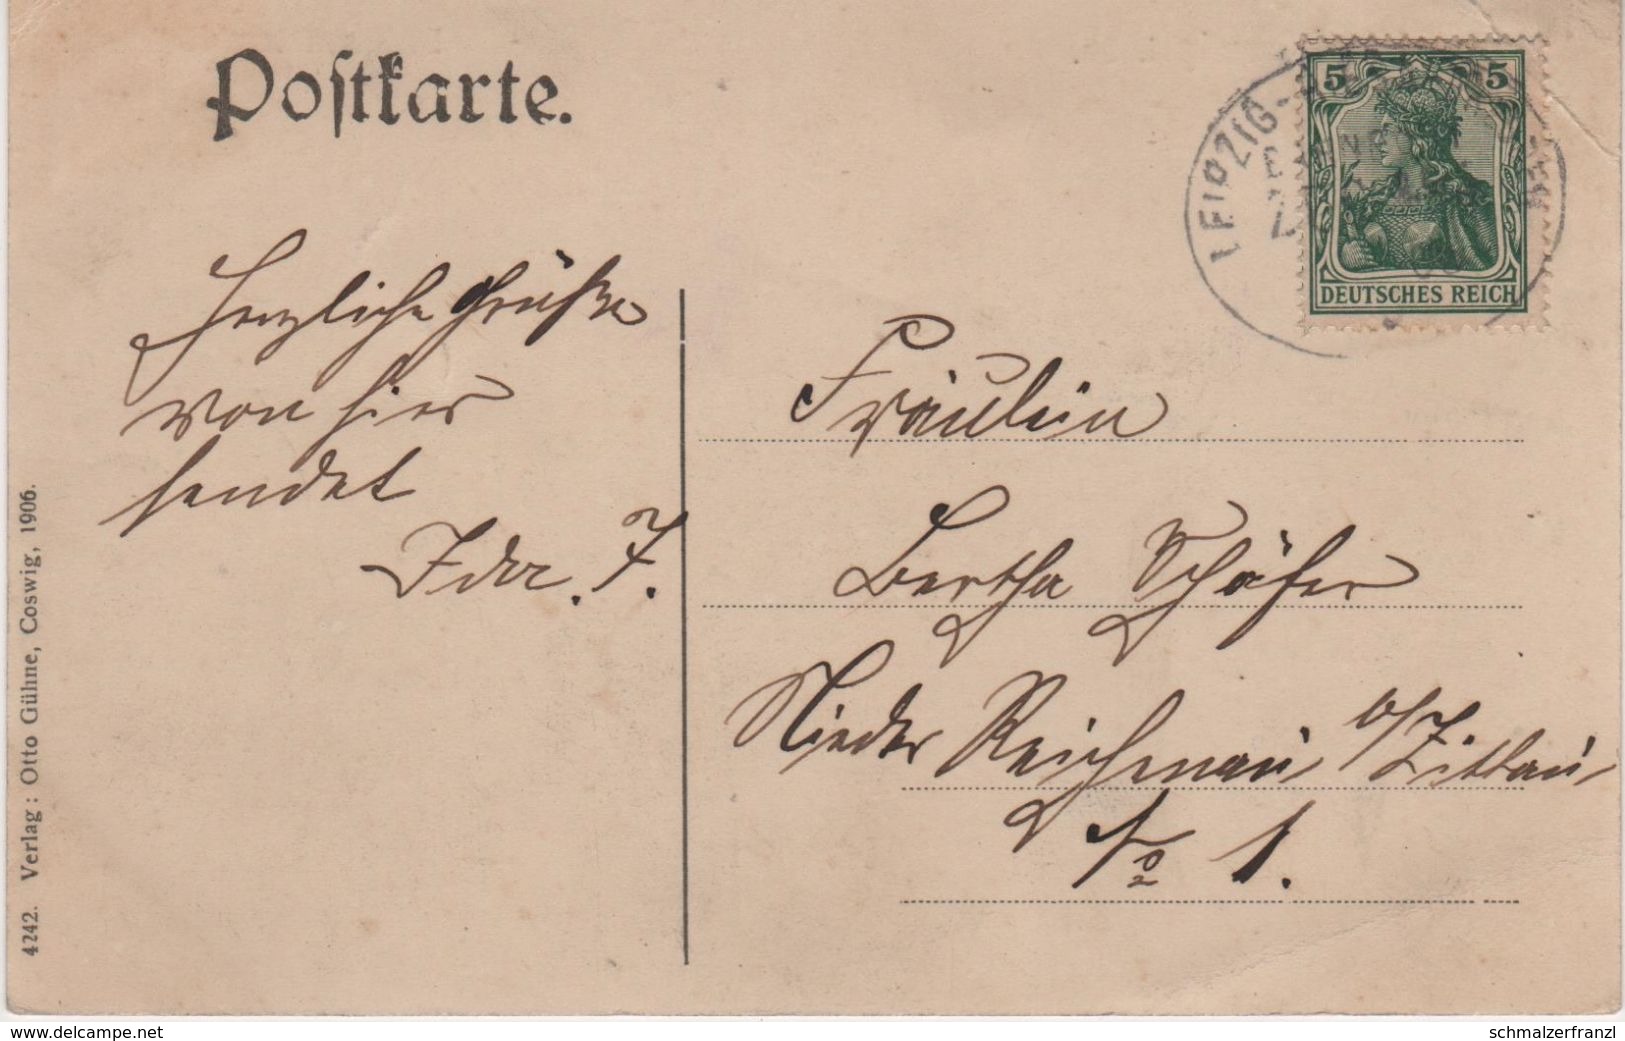 Postkarte.
5 5
DEUTSCHES REICH
LEIPZIG-
Herzliche Grüße
von hier
sendet
Ida. F.
Fräulein
Bertha Schäfer
Nieder Reichenau b/Zittau
No 1.
4242. Verlag: Otto Gühne, Coswig, 1906.
www.delcampe.net
schmalzerfranzl